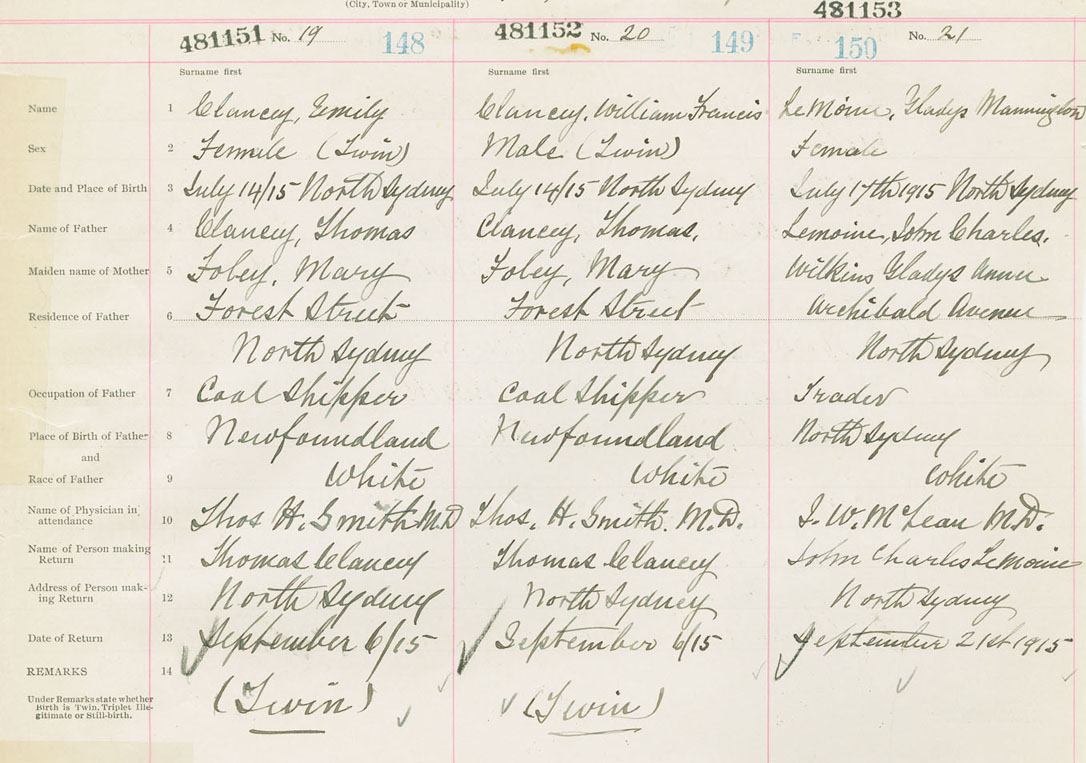 (City, Town or Municipality)
481151 No. 19 148 481152 No. 20 149 481153 150 No. 21
Surname first Surname first Surname first
Name 1 Clancey, Emily Clancey, William Francis LeMoine, Gladys Mannington
Sex 2 Female (Twin) Male (Twin) Female
Date and Place of Birth 3 July 14/15 North Sydney July 14/15 North Sydney July 17th 1915 North Sydney
Name of Father 4 Clancey, Thomas Clancey, Thomas. Lemoine, John Charles.
Maiden name of Mother 5 Tobey, Mary Tobey, Mary Wilkins Gladys Annie
Residence of Father 6 Forest Street Forest Street Archibald Avenue
North Sydney North Sydney North Sydney
Occupation of Father 7 Coal Shipper Coal Shipper Trader
Place of Birth of Father 8 Newfoundland Newfoundland North Sydney
and
Race of Father 9 White White White
Name of Physician in
attendance 10 Thos H. Smith M.D Thos. H. Smith. M.D. J. W. McLean M.D.
Name of Person making
Return 11 Thomas Clancey Thomas Clancey John Charles LeMoine
Address of Person mak-
ing Return 12 North Sydney North Sydney North Sydney
Date of Return 13 September 6/15 September 6/15 September 21st 1915
REMARKS 14
Under Remarks state whether
Birth is Twin, Triplet Ille-
gitimate or Still-birth.
(Twin) (Twin)